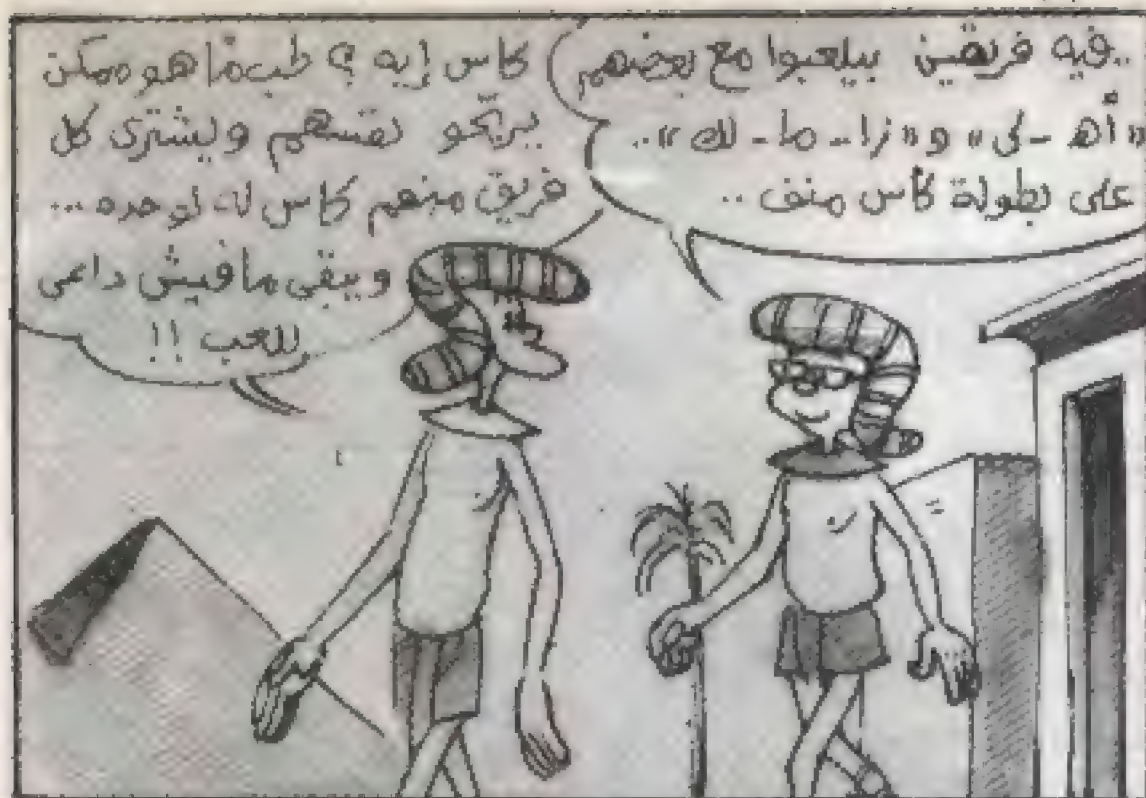 ..فيه فريقين بيلعبوا مع بعضهم
"أهـ - لى" و "زا - ما - لك"..
على بطولة كأس منف ..
كاس إيه ؟ طب ما هو ممكن
يريّحو نفسهم ويشترى كل
فريق منهم كاس له لوحده ...
ويبقى مافيش داعى
للعب !!